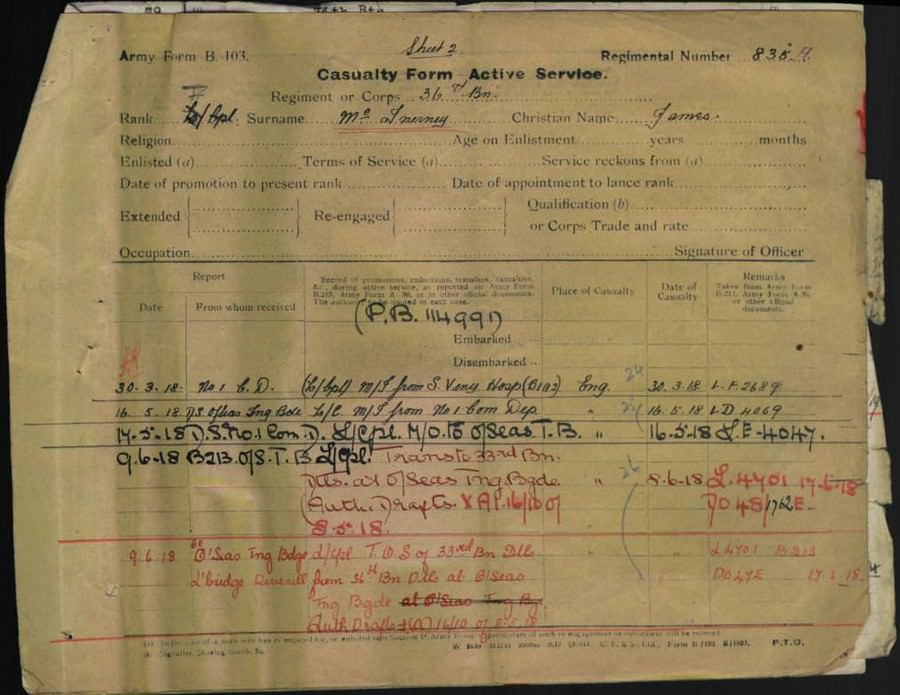 Sheet 2
Army Form B. 103. Regimental Number 835
Casualty Form - Active Service.
Regiment or Corps 36th Bn.
Rank L/Cpl. Surname McInerney Christian Name James.
Religion Age on Enlistment years months
Enlisted (a) Terms of Service (a) Service reckons from (a)
Date of promotion to present rank Date of appointment to lance rank
Extended Re-engaged Qualification (b)
or Corps Trade and rate
Occupation Signature of Officer
Report
Date From whom received
Record of promotions, reductions, transfers, casualties, &c., during active service, as reported on Army Form B.213, Army Form A. 36, or in other official documents. The authority to be quoted in each case.
Place of Casualty
Date of Casualty
Remarks
Taken from Army Form B.213, Army Form A.36, or other official documents.
(P.B. 114991)
Embarked
Disembarked
30.3.18. No 1 C.D. (L/Cpl) M/I from S. Veny Hosp (B182) Eng. 30.3.18 L.F 2689
16.5.18 O/Seas Tng Bde L/C. M/I from No 1 Com Dep " 16.5.18 LD 4069
17-5-18 D.S. No.1 Com. D. L/Cpl. M/O. to O/Seas T.B. " 16-5-18 L.E-4047.
9.6-18 B213. O/S. T.B L/Cpl. Trans to 33rd Bn.
Dts. at O/Seas Tng Bgde. " 8.6-18 L.4701 17-6-18
(Auth. Drafts. XA1.16/10 of DO 48/1762E.
8.5.18.
9.6.18 O'Seas Tng Bdge L/Cpl T.O.S of 33rd Bn Dtls " " L4701 B213
L'bridge Deverill from 36th Bn Dtls at O'Seas DO47E 17.6.18.
Tng Bgde at O'Seas Tng Bg.
Auth Drafts 16/10 of 8.5.18
P.T.O.